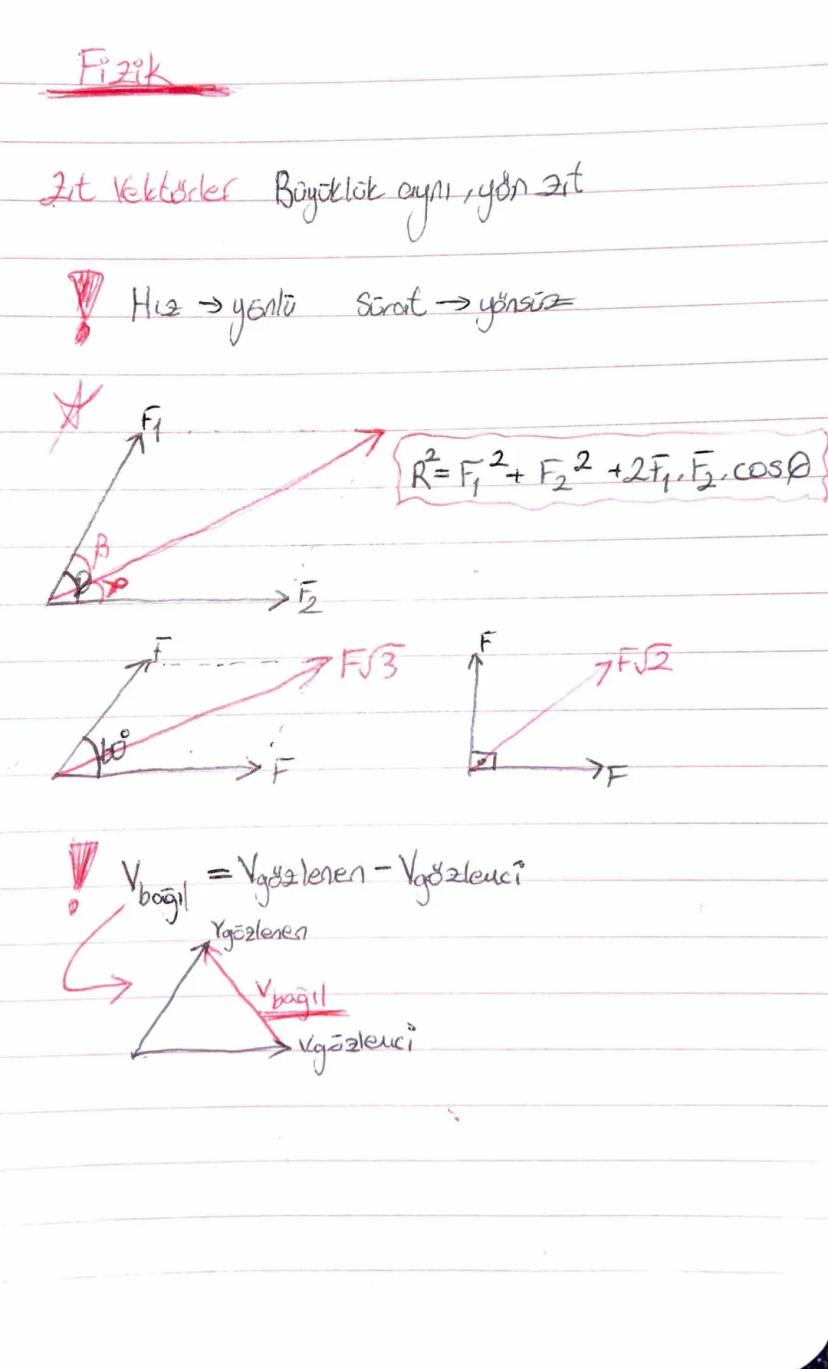 Fizik
Zıt Vektörler Büyüklük aynı, yön zıt
! Hız → yönlü Sürat → yönsüz
F₁
R² = F₁² + F₂² + 2F₁.F₂.cosθ
β
θ α
F₂
F F√3
60°
F
F F√2
F
! Vbağıl = Vgözlenen - Vgözlemci
Vgözlenen
Vbağıl
Vgözlemci